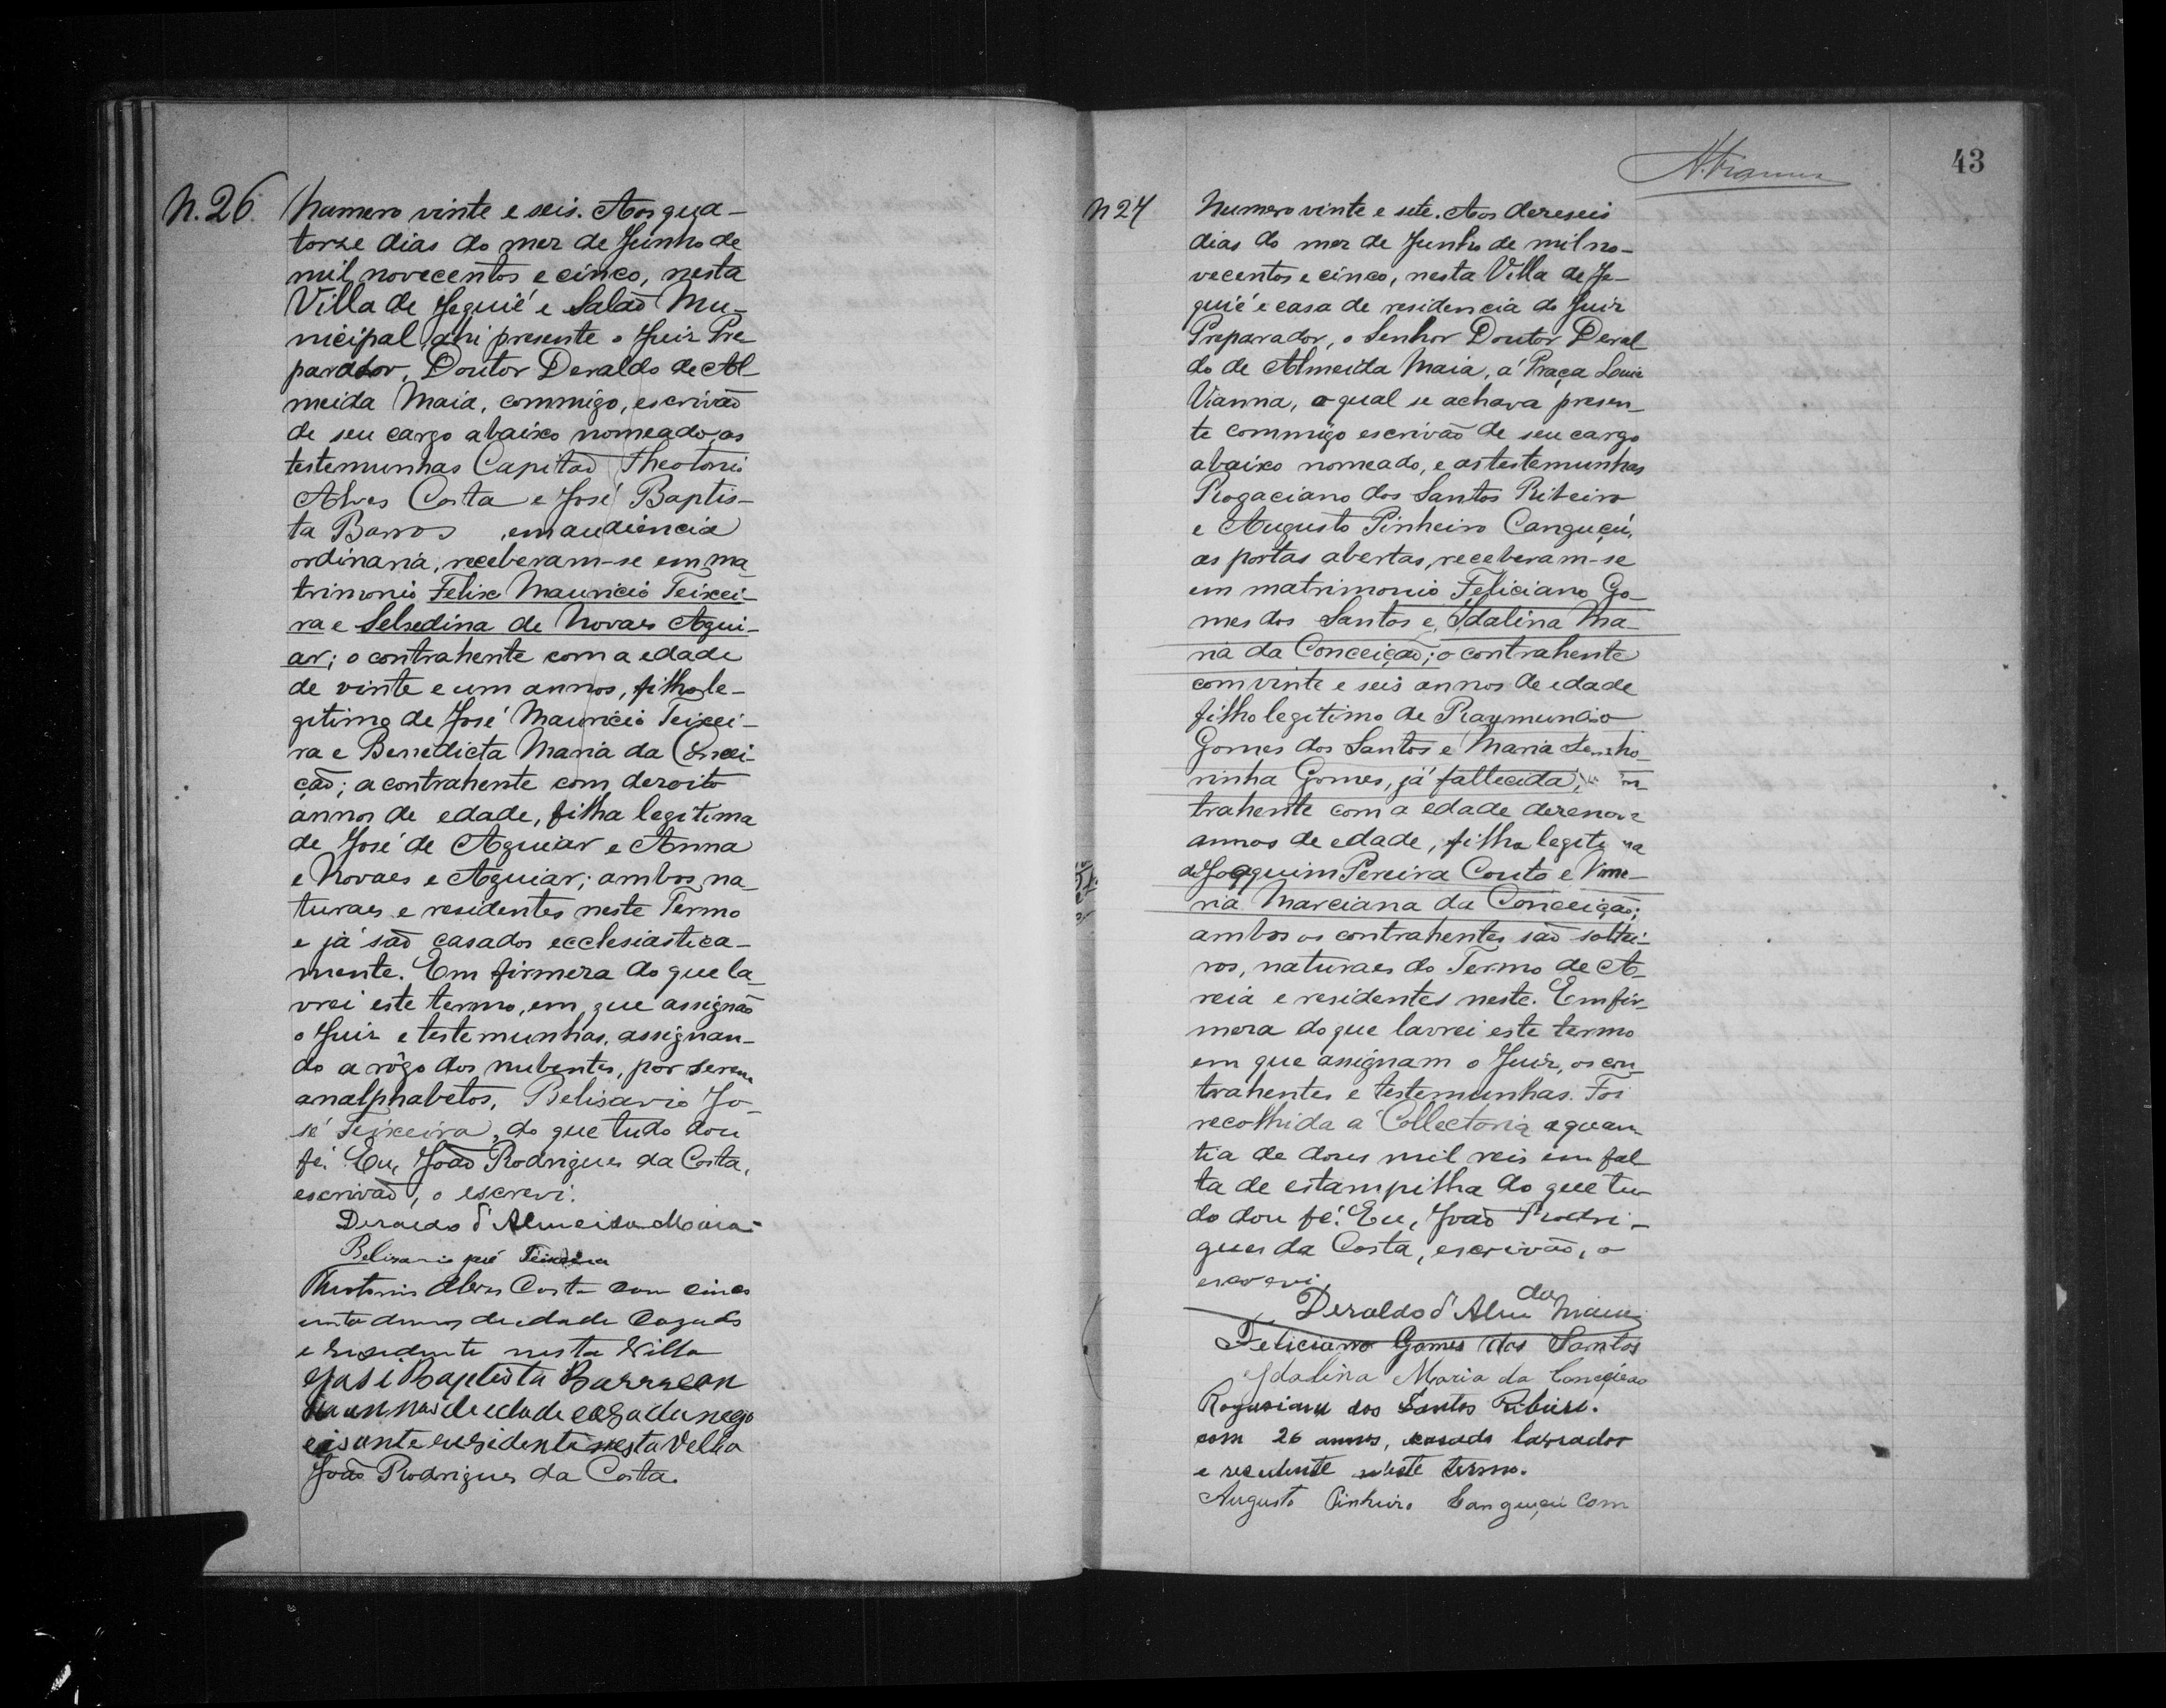 N. 26. Numero vinte e seis. Aos qua-
torze dias do mez de Junho de
mil novecentos e cinco, nesta
Villa de Jequié e Salão Mu-
nicipal, ahi presente o Juiz Pre
parador, Doutor Deraldo de Al-
meida Maia, commigo, escrivão
de seu cargo abaixo nomeado, as
testemunhas Capitão Theotonio
Alves Costa e José Baptis-
ta Barros, em audiencia
ordinaria, receberam-se em ma-
trimonio Felix Mauricio Teixei-
ra e Selsedina de Novaes Agui-
ar; o contrahente com a edade
de vinte e um annos, filho le-
gitimo de José Mauricio Teixei-
ra e Benedicta Maria da Concei-
ção; a contrahente com dezoito
annos de edade, filha legitima
de José de Aguiar e Anna
e Novaes e Aguiar; ambos na-
turaes e residentes neste Termo
e já são casados ecclesiastica-
mente. Em firmeza do que la-
vrei este termo, em que assignão
o Juiz e testemunhas, assignan-
do a rôgo dos nubentes, por serem
analphabetos, Belisario Jo-
sé Teixeira, do que tudo dou
fé. Eu, João Rodrigues da Costa,
escrivão, o escrevi.
Deraldo d'Almeida Maia
Belisario José Teixeira
Theotonio Alves Costa com cinco
enta annos de edade Cazado
e residente nesta Villa
José Baptista Barros con
annos de edade cazado nego
cisante rezidente nesta Vella
João Rodrigues da Costa.
43
N 27 Numero vinte e sete. Aos dezeseis
dias do mez de Junho de mil no-
vecentos e cinco, nesta Villa de Je-
quié e casa de residencia do Juiz
Preparador, o Senhor Doutor Deral
do de Almeida Maia, á Praça Louis
Vianna, o qual se achava presen-
te commigo escrivão de seu cargo
abaixo nomeado, e as testemunhas
Rogaciano dos Santos Ribeiro
e Augusto Pinheiro Canguçú,
as portas abertas, receberam-se
em matrimonio Feliciano Go-
mes dos Santos e Idalina Ma-
ria da Conceição; o contrahente
com vinte e seis annos de edade
filho legitimo de Raymundo
Gomes dos Santos e Maria Senho-
rinha Gomes, já fallecida,
trahente com a edade dezenove
annos de edade, filha legitima
de Joaquim Pereira Couto e
ria Marciana da Conceição;
ambos os contrahentes são soltei-
ros, naturaes do Termo de A-
reia e residentes neste. Em fir-
meza do que lavrei este termo
em que assignam o Juiz, os con-
trahentes e testemunhas. Foi
recolhida á Collectoria a quan-
tia de dous mil reis em fal
ta de estampilha do que tu-
do dou fé. Eu, João Rodri-
gues da Costa, escrivão, o
escrevi.
Deraldo d'Almda Maia
Feliciano Gomes dos Santos
Idalina Maria da Conceição
Rogaciano dos Santos Ribeiro.
com 26 annos, casado lavrador
e residente neste termo.
Augusto Pinheiro Canguçú com